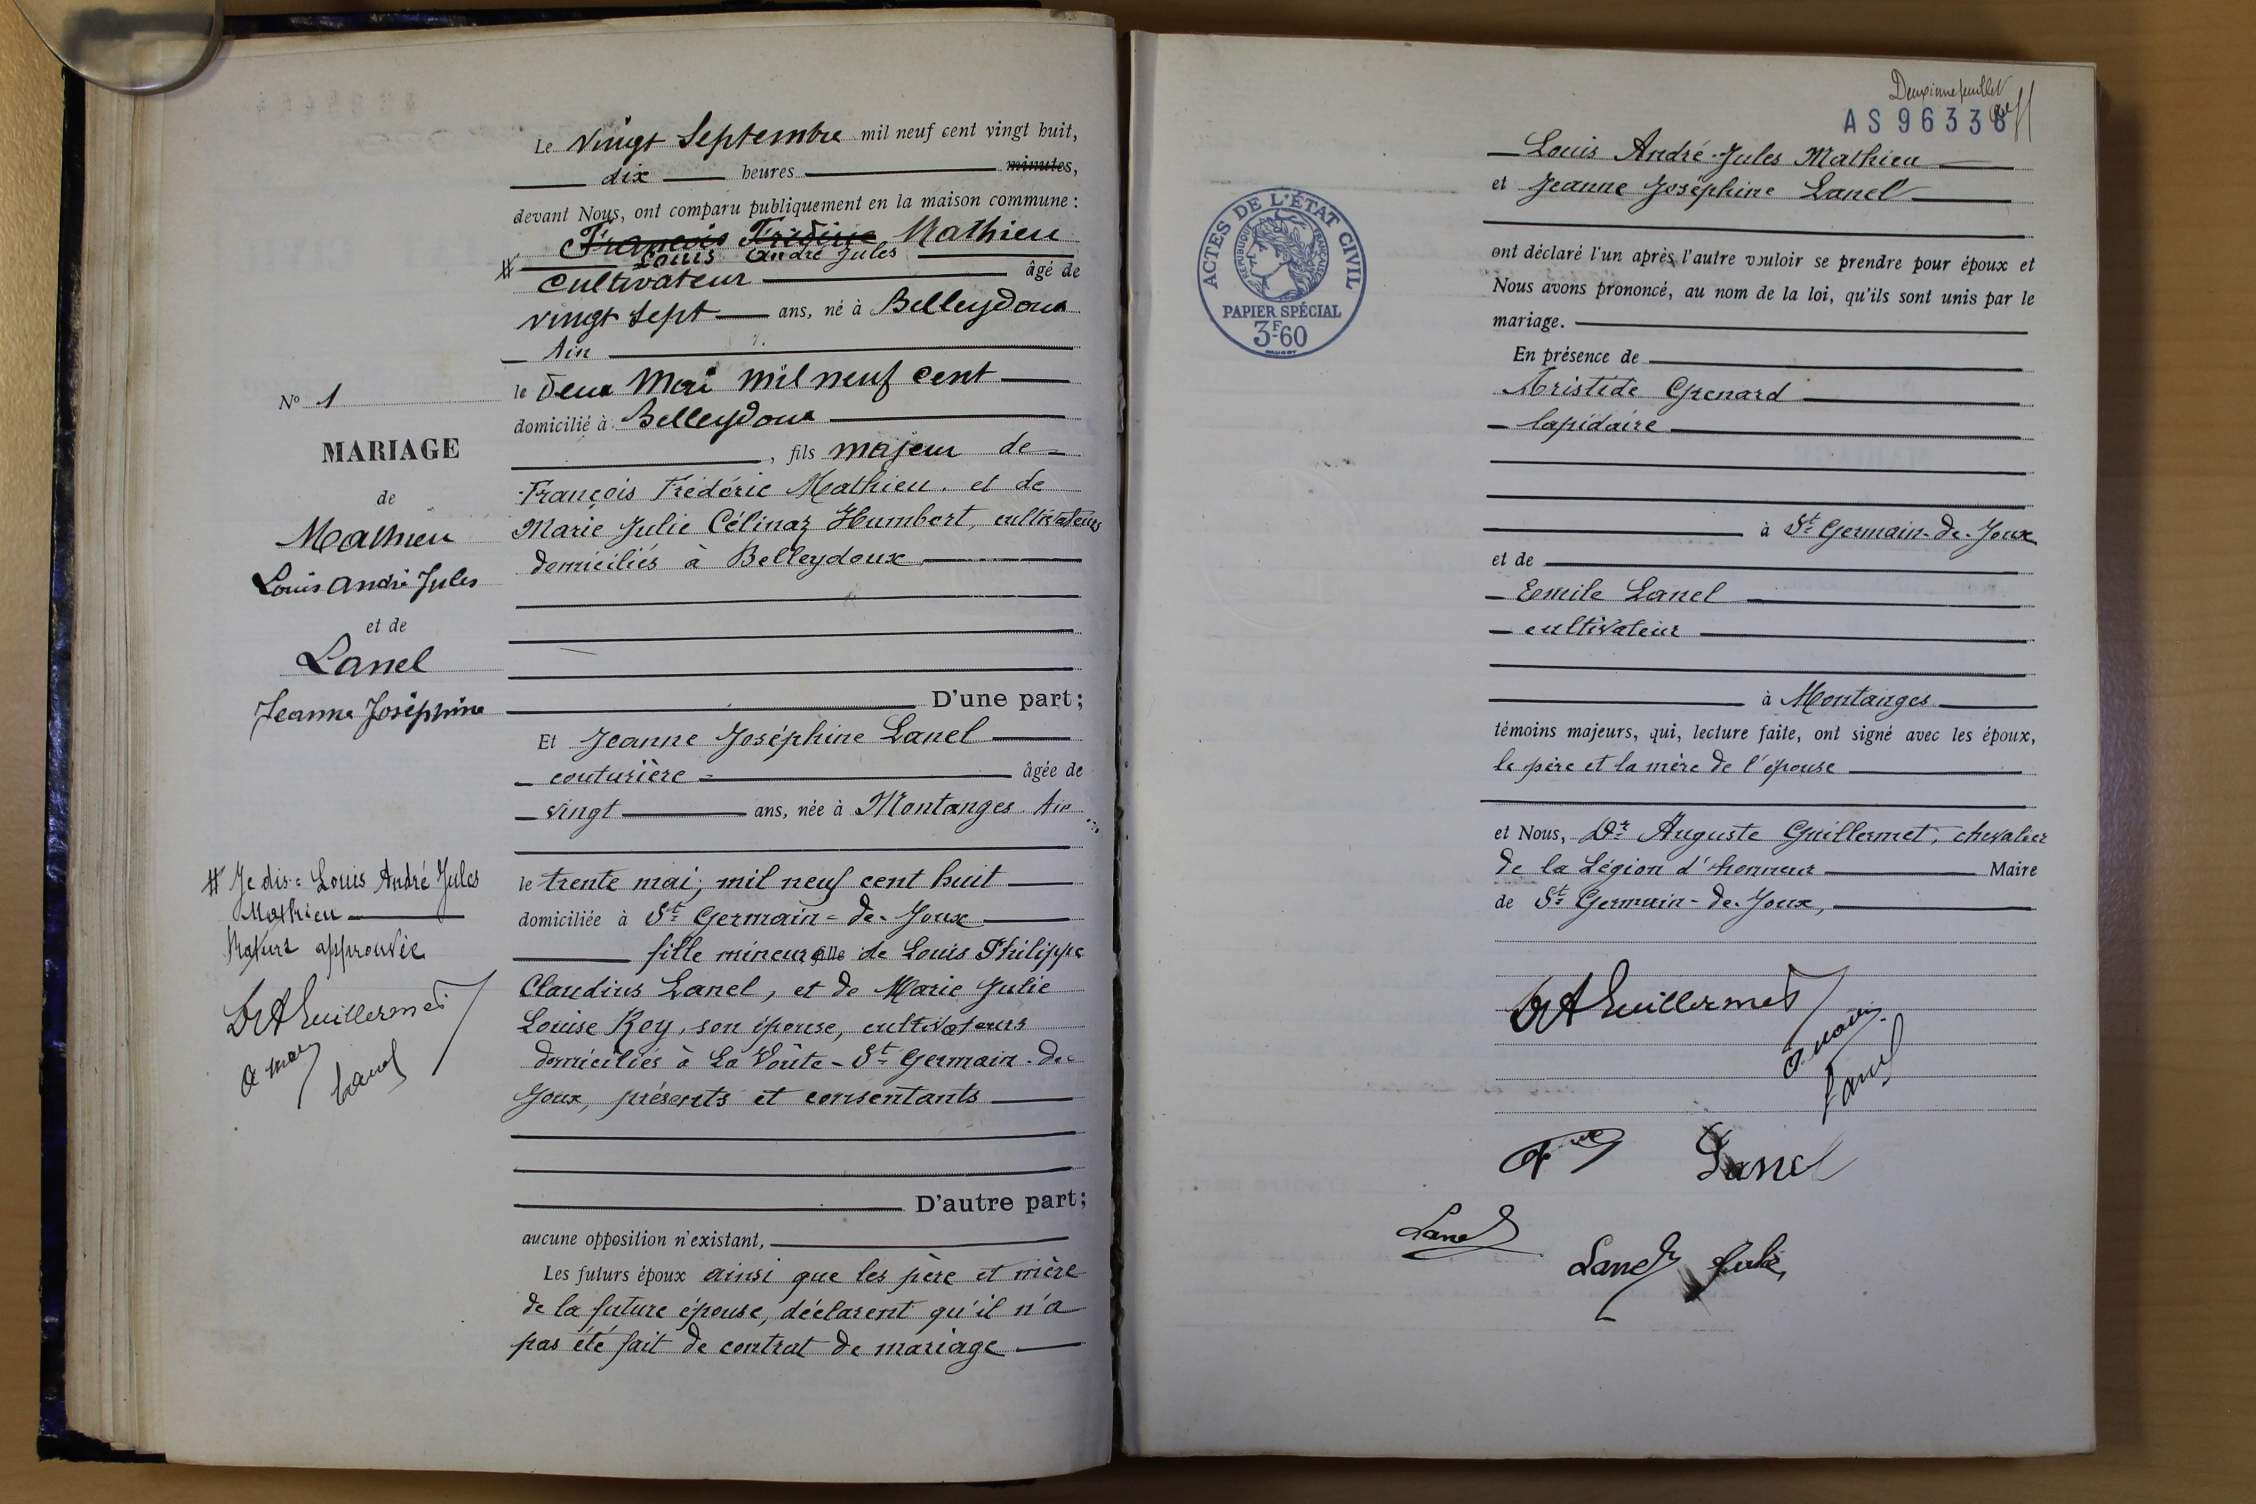 Le vingt Septembre mil neuf cent vingt huit,
dix heures minutes,
devant Nous, ont comparu publiquement en la maison commune :
François Frédéric Mathieu
# Louis André Jules
cultivateur âgé de
vingt sept ans, né à Belleydoux
Ain
le deux Mai mil neuf cent
domicilié à Belleydoux
, fils majeur de
François Frédéric Mathieu et de
Marie Julie Célinaz Humbert, cultivateurs
domiciliés à Belleydoux
D'une part;
Et Jeanne Joséphine Lanel
couturière âgée de
vingt ans, née à Montanges Ain
le trente mai, mil neuf cent huit
domiciliée à St Germain-de-Joux
fille mineure fille de Louis Philippe
Claudius Lanel, et de Marie Julie
Louise Rey, son épouse, cultivateurs
domiciliés à La Voûte - St Germain-de
Joux, présents et consentants
D'autre part;
aucune opposition n'existant,
Les futurs époux ainsi que les père et mère
de la future épouse, déclarent qu'il n'a
pas été fait de contrat de mariage
No 1
MARIAGE
de
Mathieu
Louis André Jules
et de
Lanel
Jeanne Joséphine
# Je dis : Louis André Jules
Mathieu
Rature approuvée
Dr A Guillermet
Lanel
Deuxième feuillet
AS 96338
Louis André Jules Mathieu
et Jeanne Joséphine Lanel
ACTES DE L'ÉTAT CIVIL
RÉPUBLIQUE FRANÇAISE
PAPIER SPÉCIAL
3F-60
ont déclaré l'un après l'autre vouloir se prendre pour époux et
Nous avons prononcé, au nom de la loi, qu'ils sont unis par le
mariage.
En présence de
Aristide Grenard
lapidaire
à St Germain-de-Joux
et de
Emile Lanel
cultivateur
à Montanges
témoins majeurs, qui, lecture faite, ont signé avec les époux,
le père et la mère de l'épouse
et Nous, Dr Auguste Guillermet, chevalier
de la Légion d'honneur Maire
de St Germain-de-Joux,
Dr A Guillermet
Lanel
Lanel
Lanel
Lanel Julie